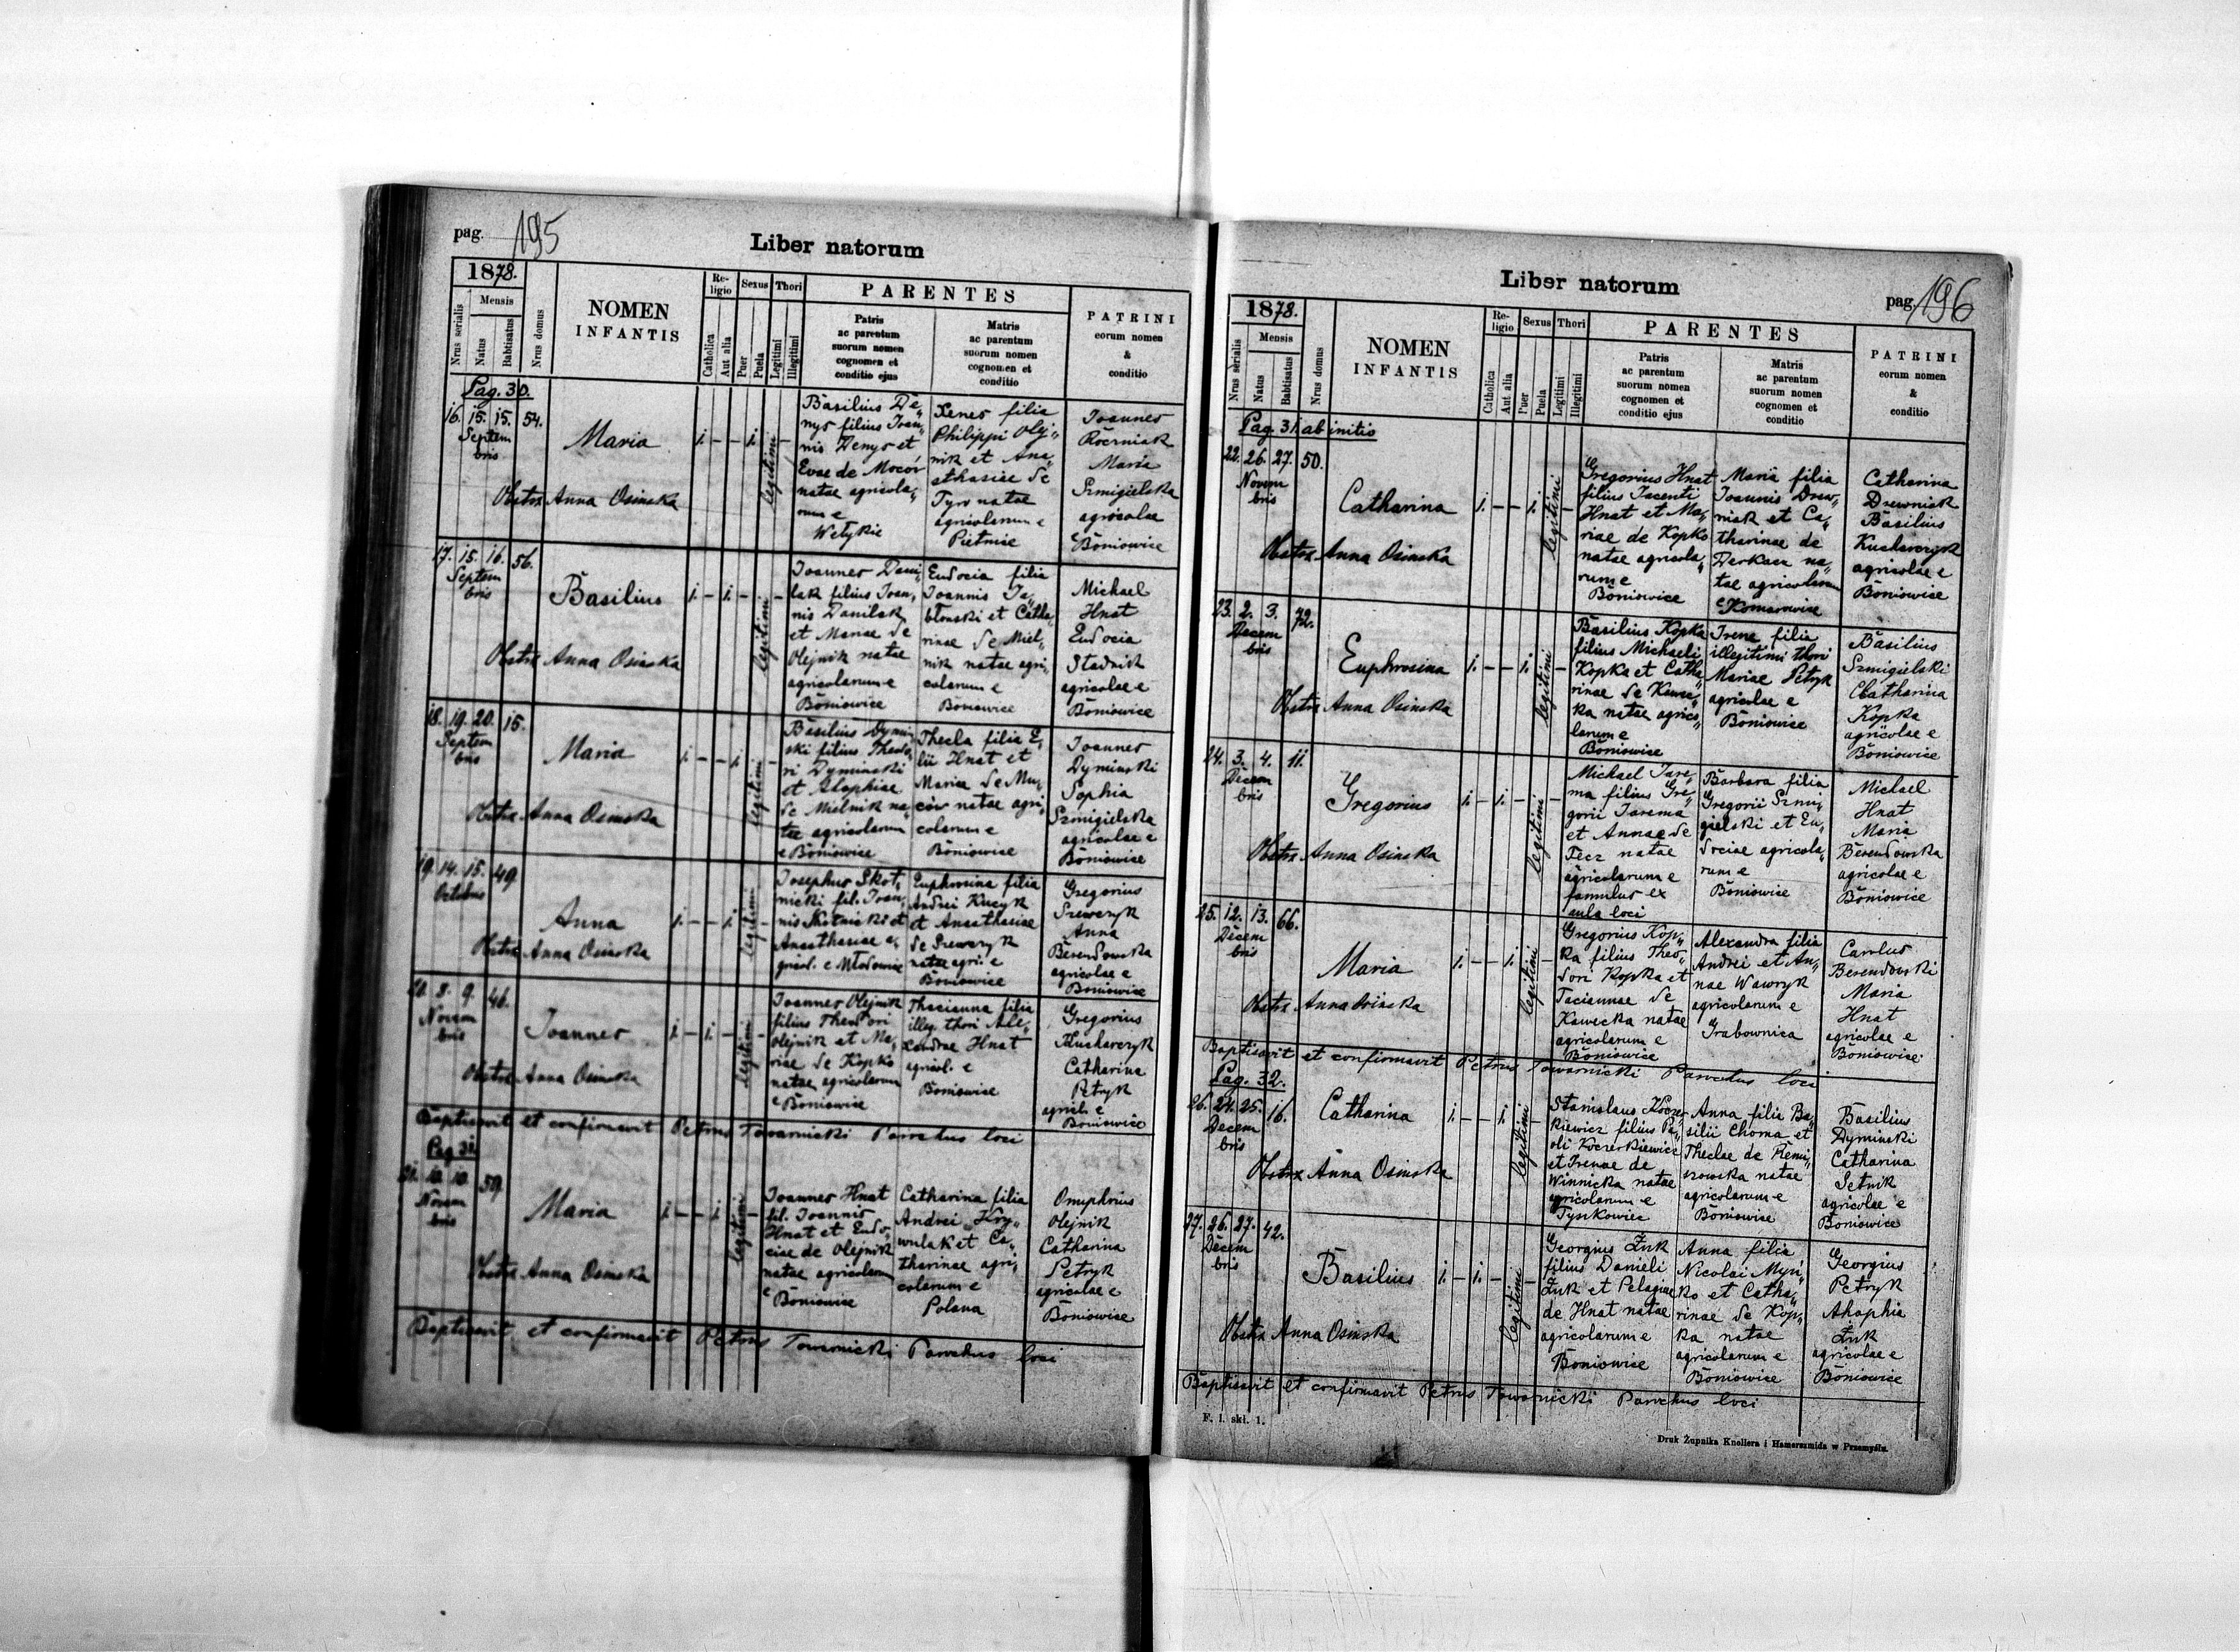 pag. 195
Liber natorum
1878.
Nrus serialis
Mensis
Natus
Babtisatus
Nrus domus
NOMEN
INFANTIS
Re-
ligio
Catholica
Aut alia
Sexus
Puer
Puela
Thori
Legitimi
Illegitimi
PARENTES
Patris
ac parentum
suorum nomen
cognomen et
conditio ejus
Matris
ac parentum
suorum nomen
cognomen et
conditio
PATRINI
eorum nomen
&
conditio
Pag. 30.
16. 15. 15. 54.
Septem
bris
Maria
Obstrx Anna Osinska
legitimi
Basilius De„
nys filius Joan„
nis Denys et
Evae de Mocór
natae agricola„
rum e
Wełykie
Xenes filia
Philippi Olej„
nik et Ana„
sthasiae de
Tyro natae
agricolarum e
Pietnice
Joannes
Roczniak
Maria
Szmigielska
agricolae
Boniowice
17. 15. 16. 56.
Septem
bris
Basilius
Obstrx Anna Osinska
legitimi
Joannes Dani„
lak filius Joan„
nis Danilak
et Mariae de
Olejnik natae
agricolarum e
Boniowice
Eudocia filia
Joannis Ja„
błonski et Catha„
rinae de Miel„
nik natae agri„
colarum e
Boniowice
Michael
Hnat
Eudocia
Stadnik
agricolae e
Boniowice
18. 19. 20. 15.
Septem
bris
Maria
Obstrx Anna Osinska
legitimi
Basilius Dymin„
ski filius Theodo„
ri Dyminski
et Ahaphiae
de Mielnik na„
tae agricolarum
e Boniowice
Thecla filia E„
lii Hnat et
Mariae de Mu„
cór natae agri„
colarum e
Boniowice
Joannes
Dyminski
Sophia
Szmigielska
agricolae e
Boniowice
19. 14. 15. 49.
Octobris
Anna
Obstrx Anna Osinska
legitimi
Josephus Skot„
nicki fil. Joan„
nis Skotnicki et
Anasthasiae a„
gricol. e Młodowice
Euphrosina filia
Andrei Kucyk
et Anasthasiae
de Szewczyk
natae agri. e
Boniowice
Gregorius
Szewczyk
Anna
Berendowska
agricolae e
Boniowice
20. 8. 9. 46.
Novem
bris
Joannes
Obstrx Anna Osinska
legitimi
Joannes Olejnik
filius Theodori
Olejnik et Ma„
riae de Kopko
natae agricolarum
e Boniowice
Thacianna filia
illeg. thori Ale„
xandrae Hnat
agricol. e
Boniowice
Gregorius
Kucharczyk
Catharina
Petryk
agricol. e
Boniowice
Baptisavit et confirmavit Petrus Towarnicki Parochus loci
Pag. 31.
21. 10. 10. 59.
Novem
bris
Maria
Obstrx Anna Osinska
legitimi
Joannes Hnat
fil. Joannis
Hnat et Eudo„
ciae de Olejnik
natae agricolarum
e Boniowice
Catharina filia
Andrei Kry„
wulak et Ca„
tharinae agri„
colarum e
Polana
Onuphrius
Olejnik
Catharina
Petryk
agricolae e
Boniowice
Baptisavit et confirmavit Petrus Towarnicki Parochus loci
Liber natorum
pag. 196
1878.
Nrus serialis
Mensis
Natus
Babtisatus
Nrus domus
NOMEN
INFANTIS
Re-
ligio
Catholica
Aut alia
Sexus
Puer
Puela
Thori
Legitimi
Illegitimi
PARENTES
Patris
ac parentum
suorum nomen
cognomen et
conditio ejus
Matris
ac parentum
suorum nomen
cognomen et
conditio
PATRINI
eorum nomen
&
conditio
Pag. 31. ab initis
22. 26. 27. 50.
Novem
bris
Catharina
Obstrx Anna Osinska
legitimi
Gregorius Hnat
filius Jacenti
Hnat et Ma„
riae de Kopko
natae agricola„
rum e
Boniowice
Maria filia
Joannis Drew„
niak et Ca„
tharinae de
Derkacz na„
tae agricolarum
e Komarowice
Catharina
Drewniak
Basilius
Kucharczyk
agricolae e
Boniowice
23. 2. 3. 72.
Decem
bris
Euphrosina
Obstrx Anna Osinska
legitimi
Basilius Kopka
filius Michaeli
Kopka et Catha„
rinae de Kawec„
ka natae agrico„
larum e
Boniowice
Irene filia
illegitimi thori
Mariae Petryk
agricolae e
Boniowice
Basilius
Szmigielski
Chatharina
Kopka
agricolae e
Boniowice
24. 3. 4. 11.
Decem
bris
Gregorius
Obstrx Anna Osinska
legitimi
Michael Jare„
ma filius Gre„
gorii Jarema
et Annae de
Fecz natae
agricolarum e
famulus ex
aula loci
Barbara filia
Gregorii Szmi„
gielski et Eu„
dociae agricola„
rum e
Boniowice
Michael
Hnat
Maria
Berendowska
agricolae e
Boniowice
25. 12. 13. 66.
Decem
bris
Maria
Obstrx Anna Osinska
legitimi
Gregorius Kop„
ka filius Theo„
dori Kopka et
Tacianna de
Kawecka natae
agricolarum e
Boniowice
Alexandra filia
Andrei et An„
nae Wawryk
agricolarum e
Grabownica
Carolus
Berendowski
Maria
Hnat
agricolae e
Boniowice
Baptisavit et confirmavit Petrus Towarnicki Parochus loci
Pag. 32.
26. 24. 25. 16.
Decem
bris
Catharina
Obstrx Anna Osinska
legitimi
Stanislaus Koczer
kiewicz filius Pa„
oli Koczerkiewicz
et Irenae de
Winnicka natae
agricolarum e
Tyszkowiec
Anna filia Ba„
silii Choma et
Theclae de Remi„
zowska natae
agricolarum e
Boniowice
Basilius
Dyminski
Catharina
Setnik
agricolae e
Boniowice
27. 26. 27. 42.
Decem
bris
Basilius
Obstrx Anna Osinska
legitimi
Georgius Żuk
filius Danieli
Żuk et Pelagiae
de Hnat natae
agricolarum e
Boniowice
Anna filia
Nicolai Myri„
ko et Catha„
rinae de Kop„
ka natae
agricolarum e
Boniowice
Georgius
Petryk
Ahaphia
Żuk
agricolae e
Boniowice
Baptisavit et confirmavit Petrus Towarnicki Parochus loci
F. l. skł. 1.
Druk Żupnika Knollera i Hamerszmida w Przemyślu.